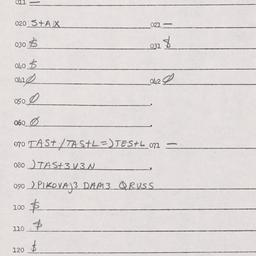 011 —
020 S+AX 021 —
030 $ 031 $
040 $
041 Ø 042 Ø
050 Ø
060 Ø
070 TAS+/TAS+L=)TES+L 071 —
080 )TAS+3V3N
090 )PIKOVAJ3 DAM3 QRUSS
100 $
110 $
120 $